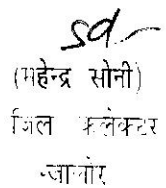 sd-
(महेन्द्र सोनी)
जिला कलेक्टर
जालोर